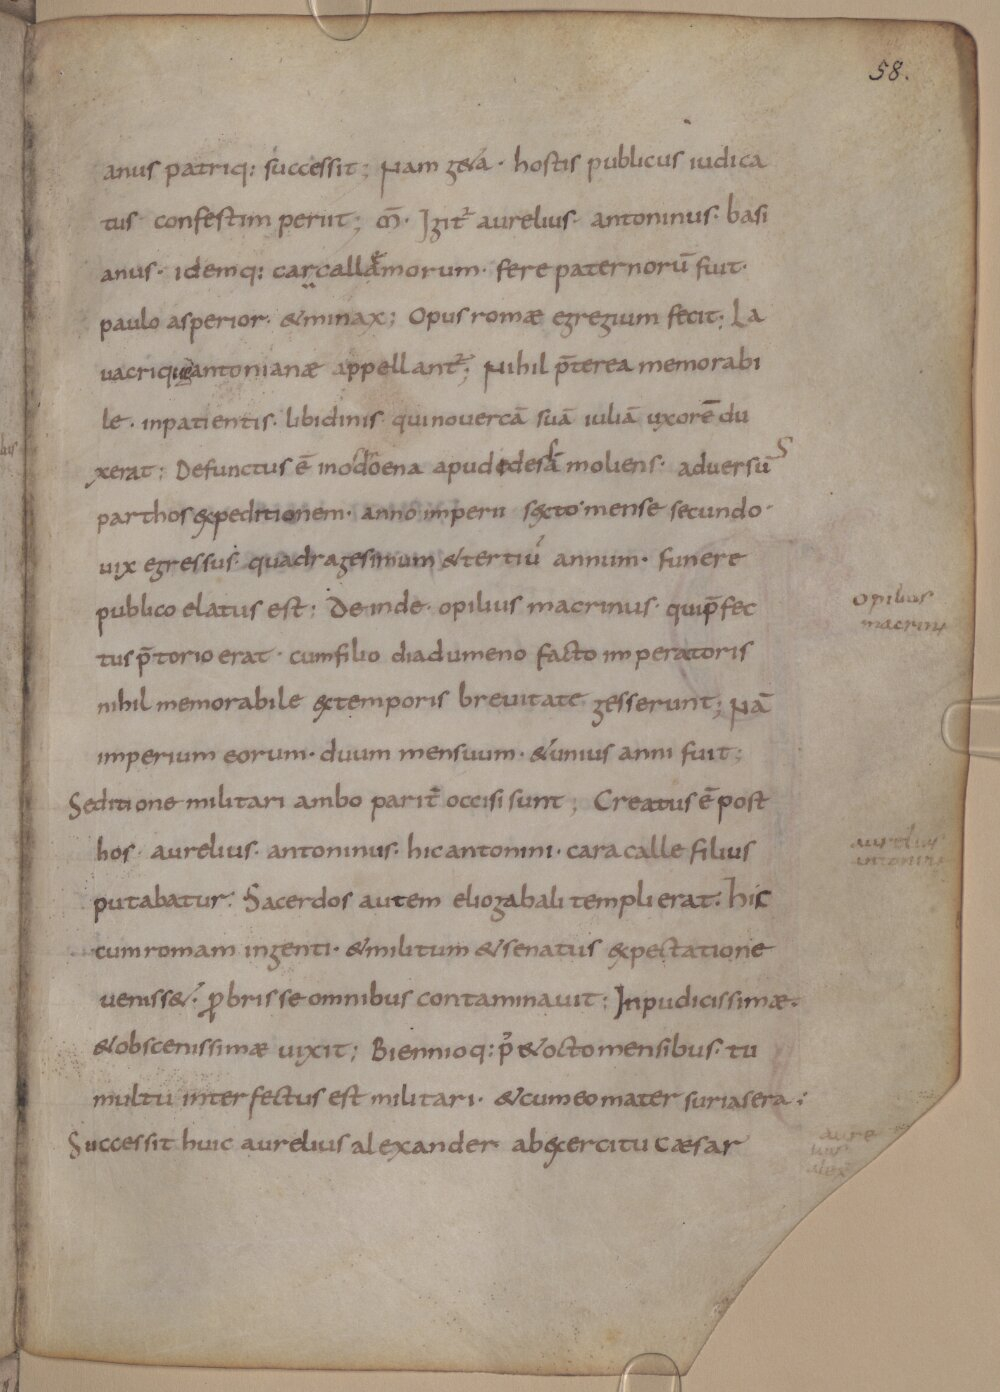 58.
anus patriq: successit; Nam g&a · hostis publicus iudica
tus confestim periit; M̄· Igit᷒ aurelius· antoninus· basi
anus· idemq: carcalla morum· fere paternorū fuit·
paulo asperior· &minax; Opus romæ egregium fecit; La
uacri antonianæ appellant᷒; Nihil p̄terea memorabi
le· inpatientis· libidinis· qui nouercā suā iuliā uxorē du
xerat; Defunctus ē apud moliens· aduersūs
parthos &peditionem· anno imperii s&to mense secundo·
uix egressus· quadragesimum &tertiū annum· Funere
publico elatus est; Deinde· opilius macrinus· qui p̄fec
tus p̄torio erat· cum filio diadumeno facto imperatoris
nihil memorabile &temporis breuitate gesserunt; Nā
imperium eorum· duum mensuum· &unius anni fuit;
Seditione militari ambo parit̄ occisi sunt; Creatus ē post
hos· aurelius· antoninus· hic antonini· cara calle filius
putabatur· Sacerdos autem eliogabali templi erat· hic
cum romam ingenti· &militum &senatus &pectatione
uenisse&· ꝓbris se omnibus contaminauit; Inpudicissimæ·
&obscenissimæ uixit; Biennioq: p᷒ &octo mensibus· tu
multu interfectus est militari· &cum eo mater suriasera;
Successit huic aurelius alexander ab &ercitu cæsar
opilius
macrin
aurelius
antonin
aure
lius
alex